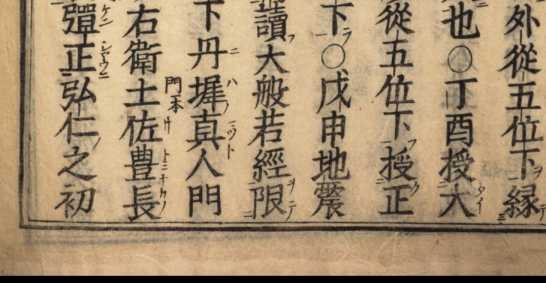 外從五位下縁
也〇丁酉授大
從五位下授正
下〇戊申地震
讀大般若經限
下丹墀真人門
右衛士佐豊長
彈正弘仁之初